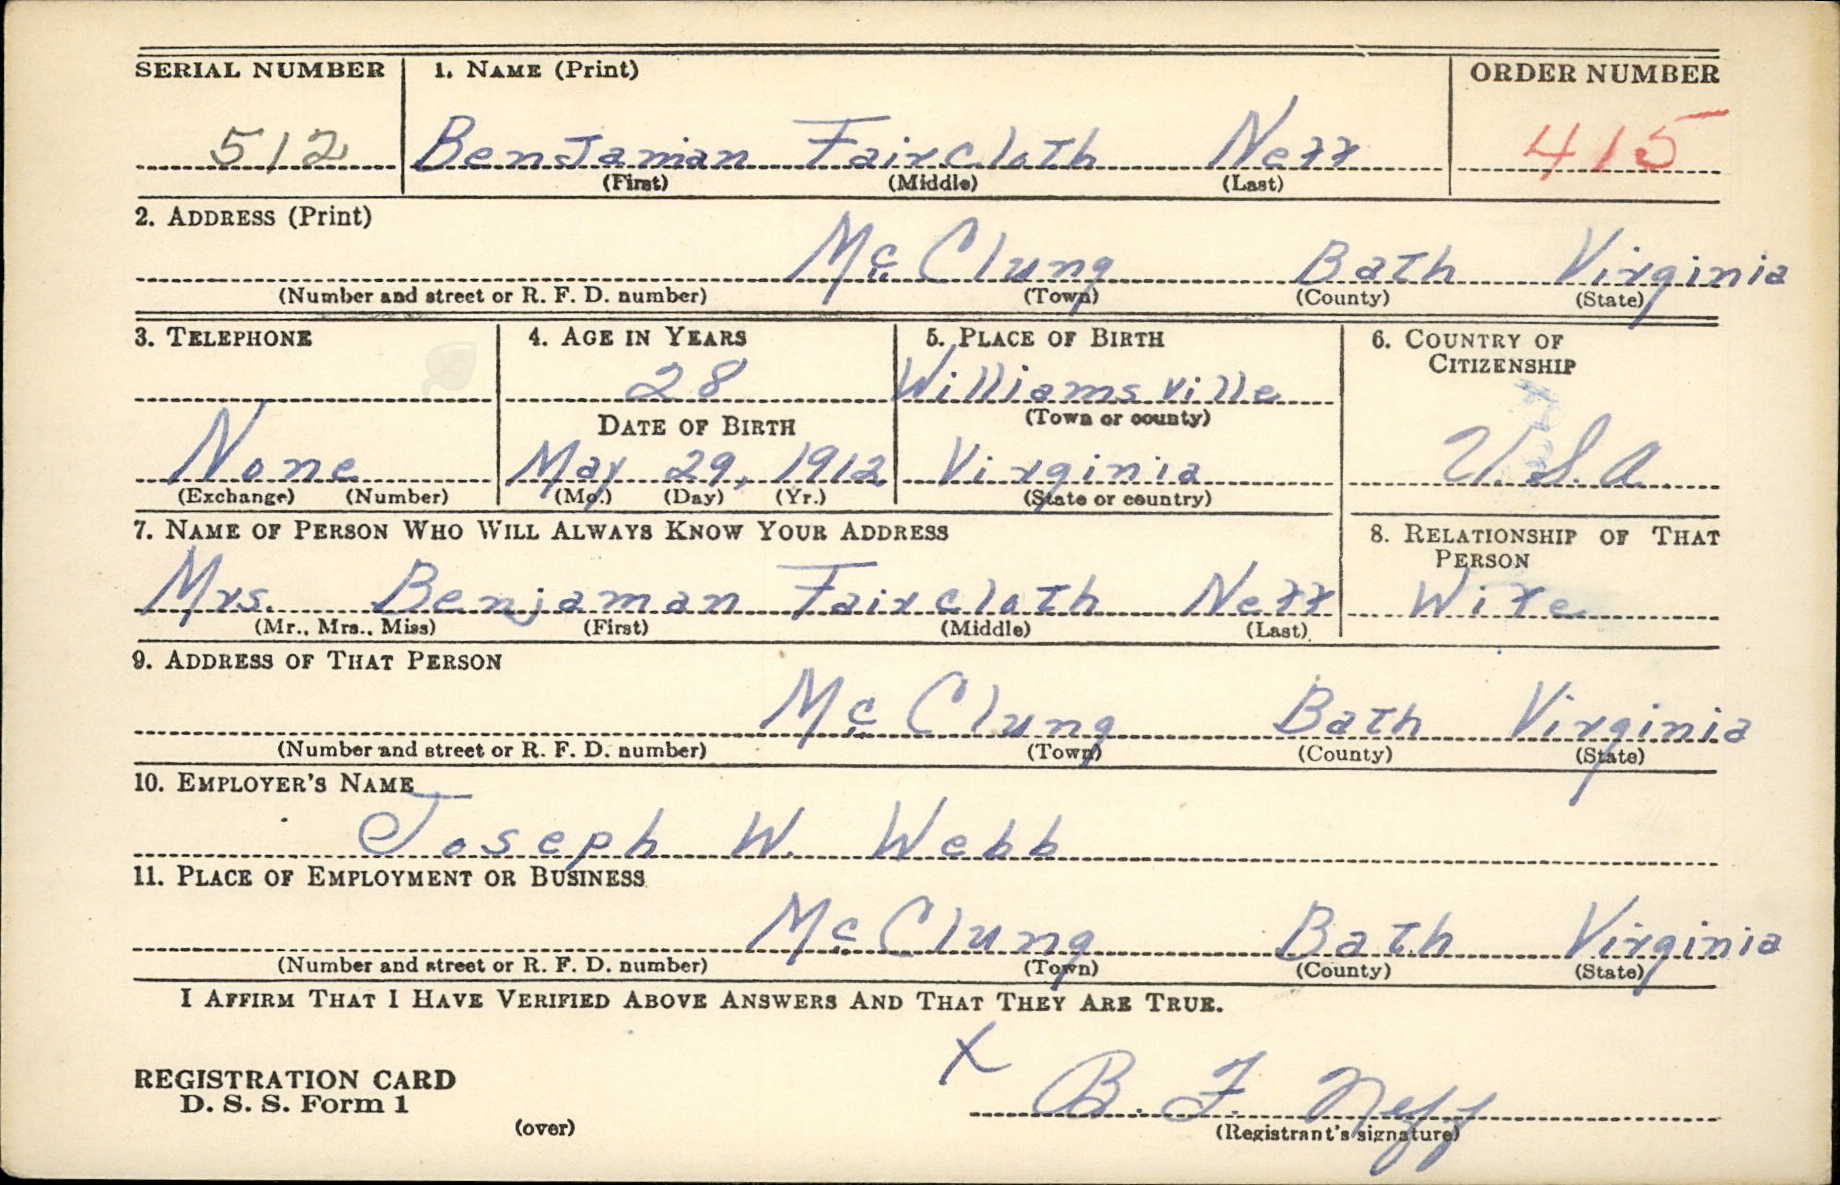 SERIAL NUMBER 1. NAME (Print) ORDER NUMBER
512 Benjaman Faircloth Neff 415
(First) (Middle) (Last)
2. ADDRESS (Print)
Mc Clung Bath Virginia
(Number and street or R. F. D. number) (Town) (County) (State)
3. TELEPHONE 4. AGE IN YEARS 5. PLACE OF BIRTH 6. COUNTRY OF
CITIZENSHIP
28 Williamsville
DATE OF BIRTH (Town or county)
None May 29, 1912 Virginia U.S.A.
(Exchange) (Number) (Mo.) (Day) (Yr.) (State or country)
7. NAME OF PERSON WHO WILL ALWAYS KNOW YOUR ADDRESS 8. RELATIONSHIP OF THAT
PERSON
Mrs. Benjaman Faircloth Neff Wife
(Mr., Mrs., Miss) (First) (Middle) (Last)
9. ADDRESS OF THAT PERSON
Mc Clung Bath Virginia
(Number and street or R. F. D. number) (Town) (County) (State)
10. EMPLOYER'S NAME
Joseph W. Webb
11. PLACE OF EMPLOYMENT OR BUSINESS
Mc Clung Bath Virginia
(Number and street or R. F. D. number) (Town) (County) (State)
I AFFIRM THAT I HAVE VERIFIED ABOVE ANSWERS AND THAT THEY ARE TRUE.
X
REGISTRATION CARD B. F. Neff
D. S. S. Form 1
(over) (Registrant's signature)